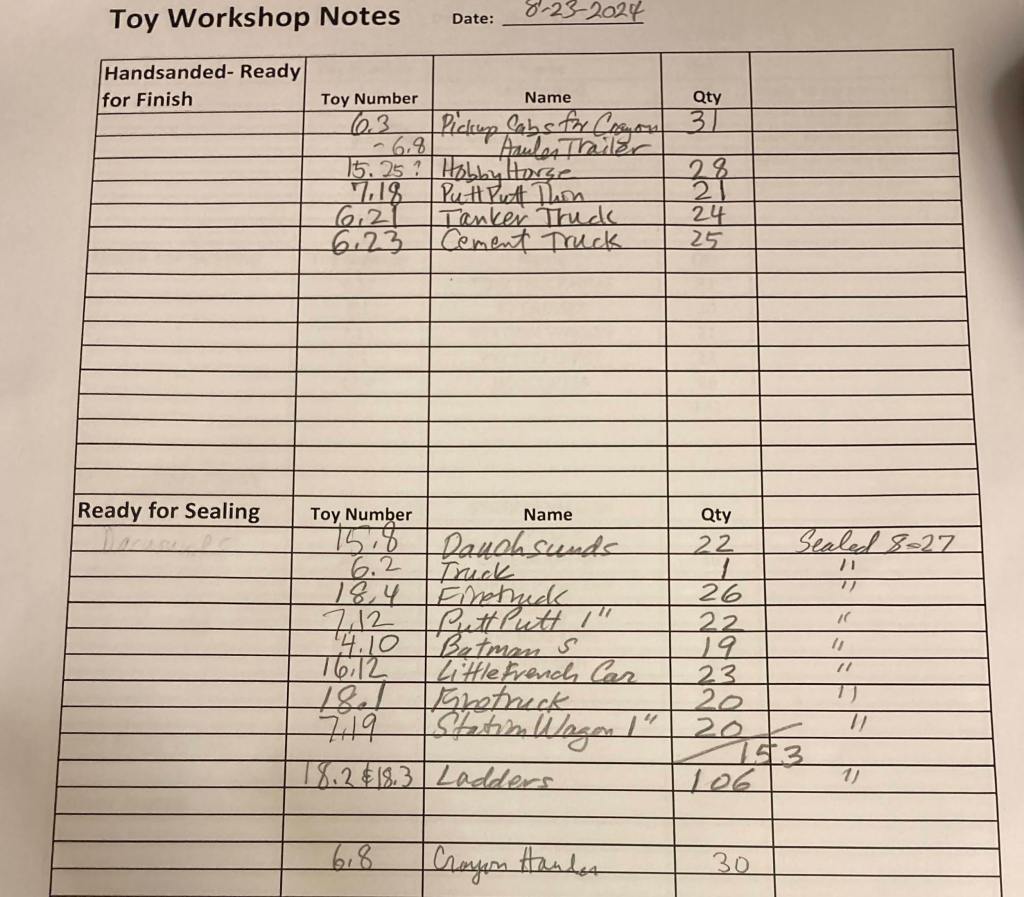 Toy Workshop Notes Date: 8-23-2024
Handsanded- Ready
for Finish Toy Number Name Qty
6.3 Pickup Cabs for Crayon 31
- 6.8 Hauler Trailer
15.25? Hobby Horse 28
7.18 Putt Putt Thon 21
6.21 Tanker Truck 24
6.23 Cement Truck 25
Ready for Sealing Toy Number Name Qty
15.8 Dauchsunds 22 Sealed 8-27
6.2 Truck 1 "
18.4 Firetruck 26 "
7.12 Putt Putt 1" 22 "
4.10 Batman S 19 "
16.12 Little French Car 23 "
18.1 Firetruck 20 "
7.19 Station Wagon 1" 20 "
153
18.2 & 18.3 Ladders 106 "
6.8 Crayon Hauler 30